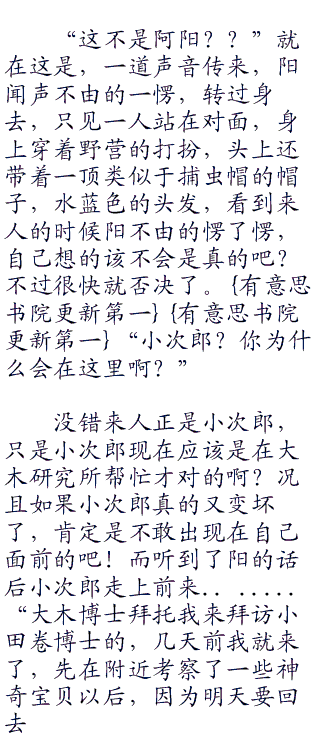 “这不是阿阳？？”就
在这是，一道声音传来，阳
闻声不由的一愣，转过身
去，只见一人站在对面，身
上穿着野营的打扮，头上还
带着一顶类似于捕虫帽的帽
子，水蓝色的头发，看到来
人的时候阳不由的愣了愣，
自己想的该不会是真的吧？
不过很快就否决了。{有意思
书院更新第一} {有意思书院
更新第一}“小次郎？你为什
么会在这里啊？”
没错来人正是小次郎，
只是小次郎现在应该是在大
木研究所帮忙才对的啊？况
且如果小次郎真的又变坏
了，肯定是不敢出现在自己
面前的吧！而听到了阳的话
后小次郎走上前来.. ......
“大木博士拜托我来拜访小
田卷博士的，几天前我就来
了，先在附近考察了一些神
奇宝贝以后，因为明天要回
去